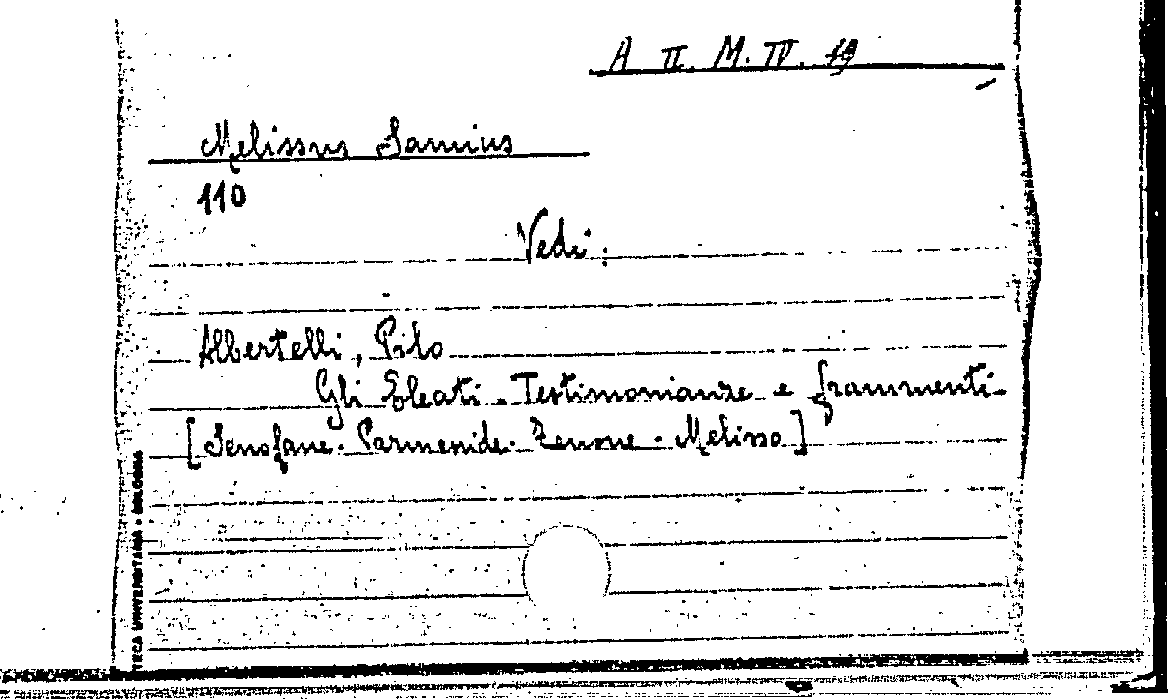 A II. M. IV. 19
Melissus Samius
110
Vedi:
Albertelli, Pilo
Gli Eleati - Testimonianze e frammenti -
[Senofane - Parmenide - Zenone - Melisso]
TECA UNIVERSITARIA - BOLOGNA